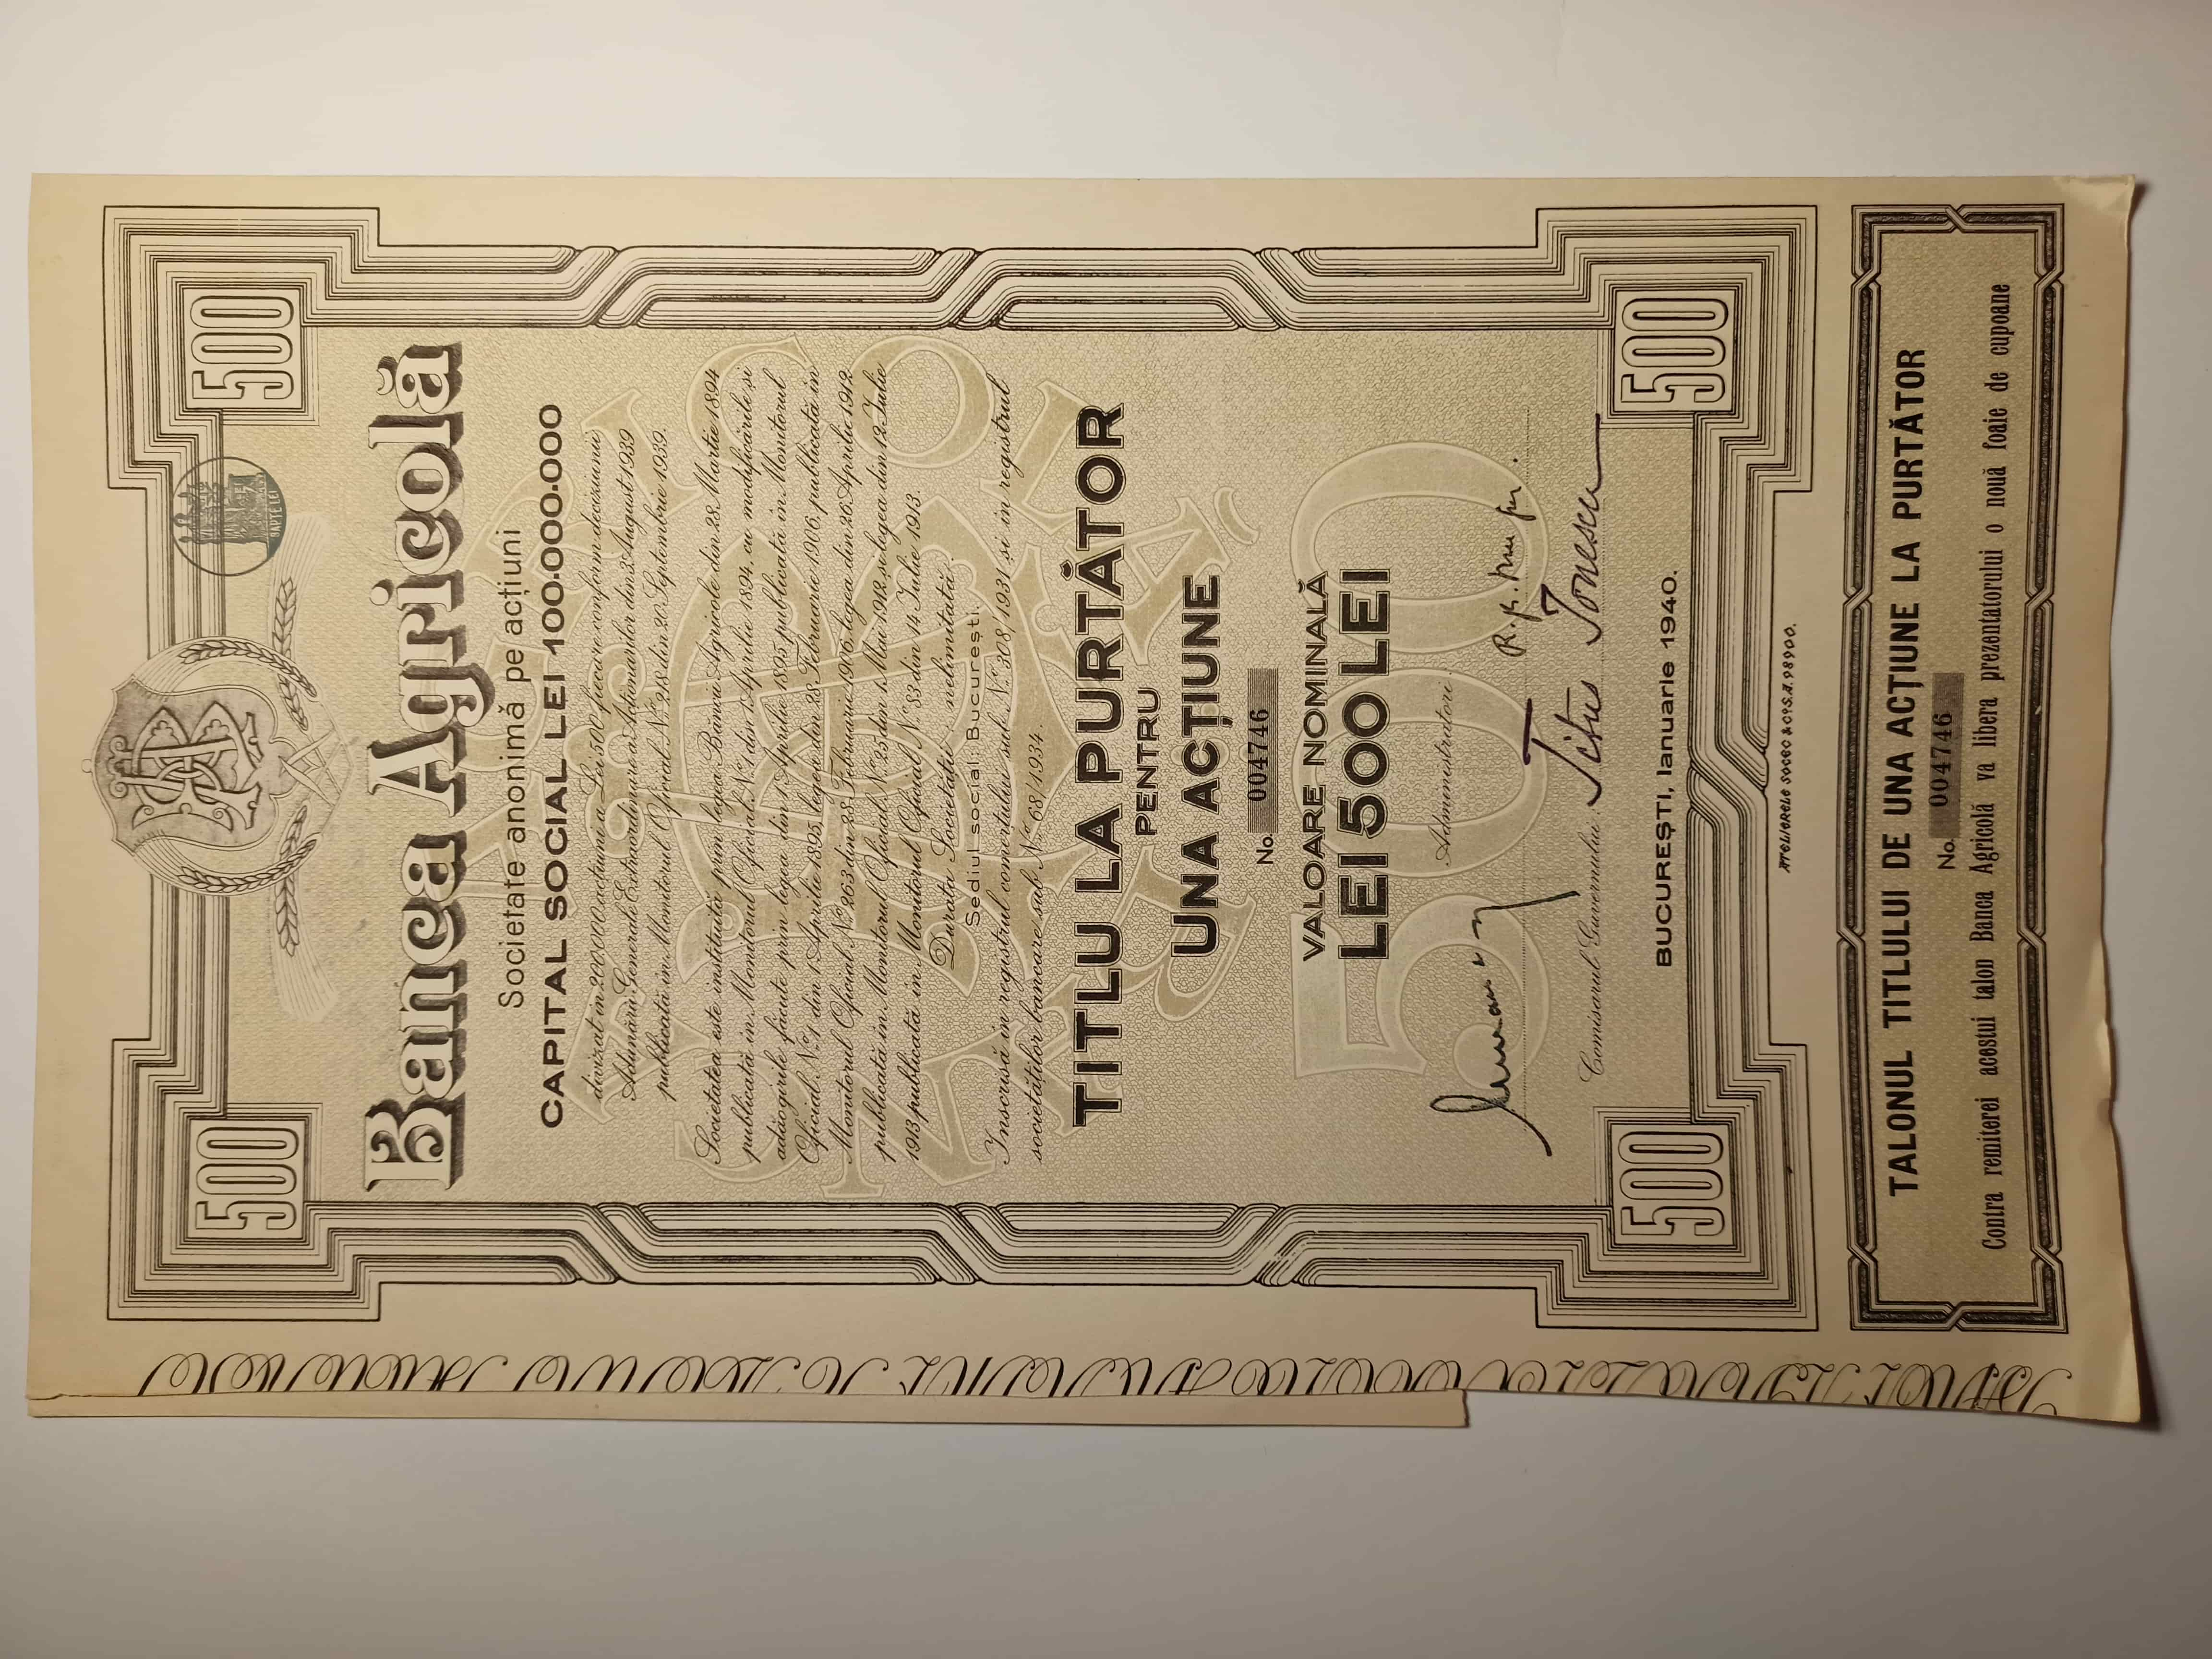 500
500
ȘAPTE LEI
Banca Agricolă
Societate anonimă pe acțiuni
CAPITAL SOCIAL LEI 100.000.000
divizat în 200.000 acțiuni a Lei 500 fiecare conform deciziunii
Adunării Generale Extraordinare a Acționarilor din 3 August 1939
publicată în Monitorul Oficial Nº 218 din 20 Septembrie 1939.
Societatea este instituită prin legea Băncii Agricole din 28 Martie 1894
publicată în Monitorul Oficial Nº 1 din 1 Aprilie 1894, cu modificările și
adăogirile făcute prin legea din 1 Aprilie 1895 publicată în Monitorul
Oficial Nº 1 din 1 Aprilie 1895, legea din 28 Februarie 1906, publicată în
Monitorul Oficial Nº 263 din 28 Februarie 1906, legea din 26 Aprilie 1912
publicată în Monitorul Oficial Nº 25 din 1 Mai 1912 și legea din 12 Iulie
1913 publicată în Monitorul Oficial Nº 83 din 14 Iulie 1913.
Durata Societății: nelimitată.
Sediul social: București.
Inscrisă în registrul comerțului sub Nº 308/1931 și în registrul
societăților bancare sub Nº 68/1934.
TITLU LA PURTĂTOR
PENTRU
UNA ACȚIUNE
No. 004746
VALOARE NOMINALĂ
LEI 500 LEI
Administratori
Comisarul Guvernului Titus Ionescu
500
500
BUCUREȘTI, Ianuarie 1940.
ATELIERELE SOCEC & Co S.A. 9890.
TALONUL TITLULUI DE UNA ACȚIUNE LA PURTĂTOR
No. 004746
Contra remiterei acestui talon Banca Agricolă va libera prezentatorului o nouă foaie de cupoane